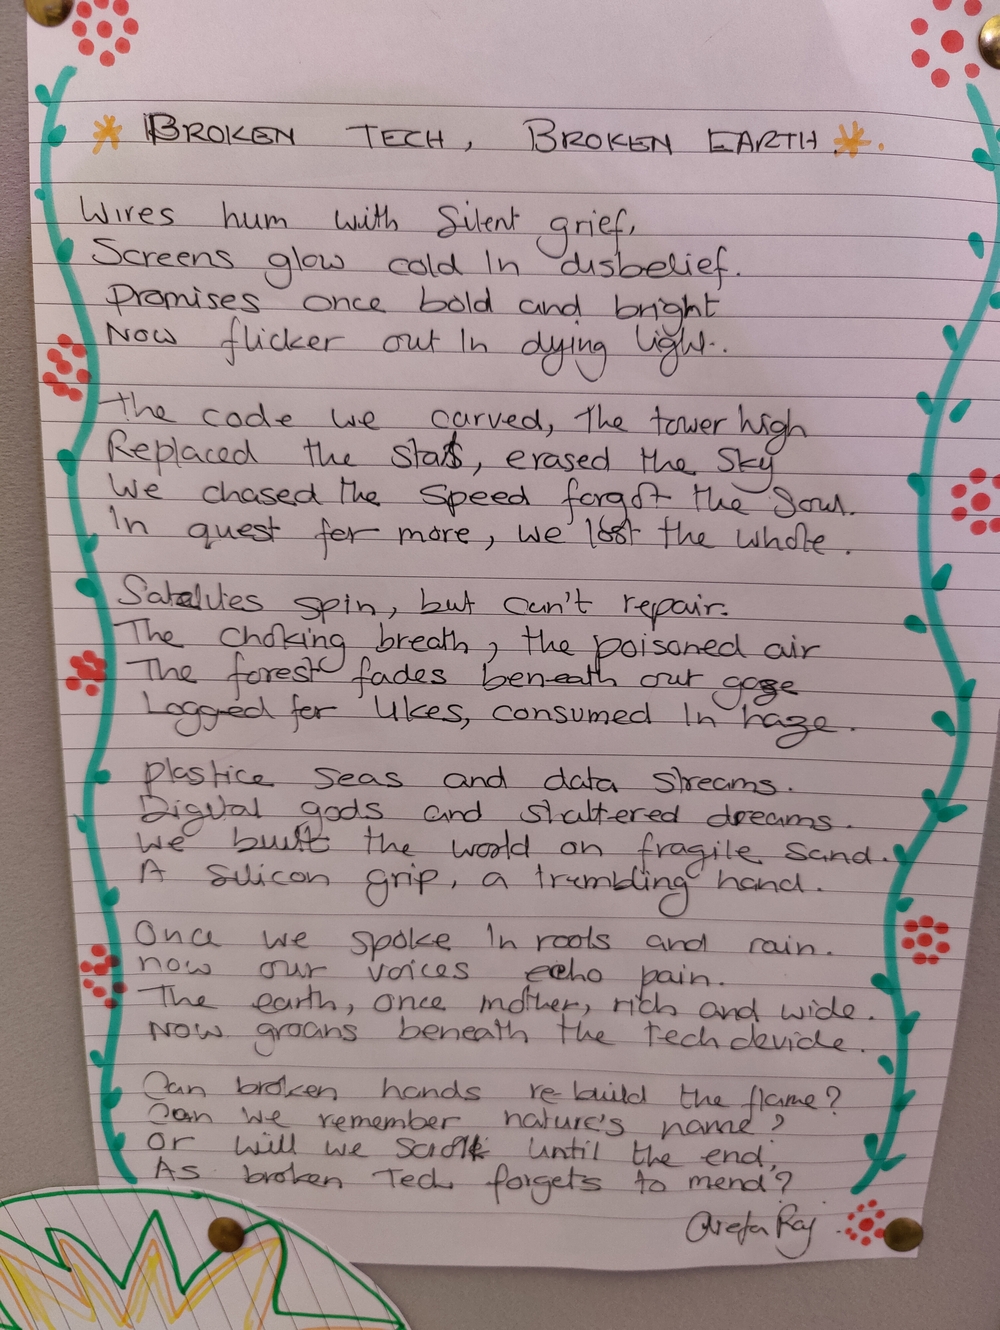 BROKEN TECH, BROKEN EARTH.
Wires hum with Silent grief,
Screens glow cold In disbelief.
Promises once bold and bright
Now flicker out In dying light.
The code we carved, The tower high
Replaced the stars, erased the Sky
We chased the Speed forgot the Soul.
In quest for more, we lost the whole.
Satellites spin, but can't repair.
The choking breath, the poisoned air
The forest fades beneath our gaze
Logged for likes, consumed In haze.
Plastice seas and data streams.
Digital gods and shattered dreams.
We built the world on fragile sand.
A Silicon grip, a trembling hand.
Once we spoke In roots and rain.
now our voices echo pain.
The earth, once mother, rich and wide.
Now groans beneath the tech devide.
Can broken hands re-build the flame?
Can we remember nature's name?
Or will we until the end,
As broken Tech forgets to mend?
Raj